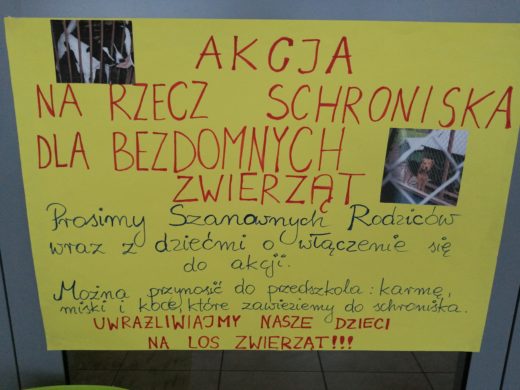 AKCJA
NA RZECZ SCHRONISKA
DLA BEZDOMNYCH
ZWIERZĄT
Prosimy Szanownych Rodziców
wraz z dziećmi o włączenie się
do akcji.
Można przynosić do przedszkola: karmę,
miski i koce, które zawieziemy do schroniska.
UWRAŻLIWIAJMY NASZE DZIECI
NA LOS ZWIERZĄT!!!